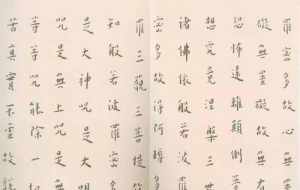 羅蜜多故心無
礙無罣礙故無
恐怖遠離顛倒
想究竟涅槃三
諸佛依般若波
蜜多故得阿耨多
羅三藐三菩提
知般若波羅蜜多
是大神咒是大明
咒是無上咒是
等等咒能除一
苦真實不虛故